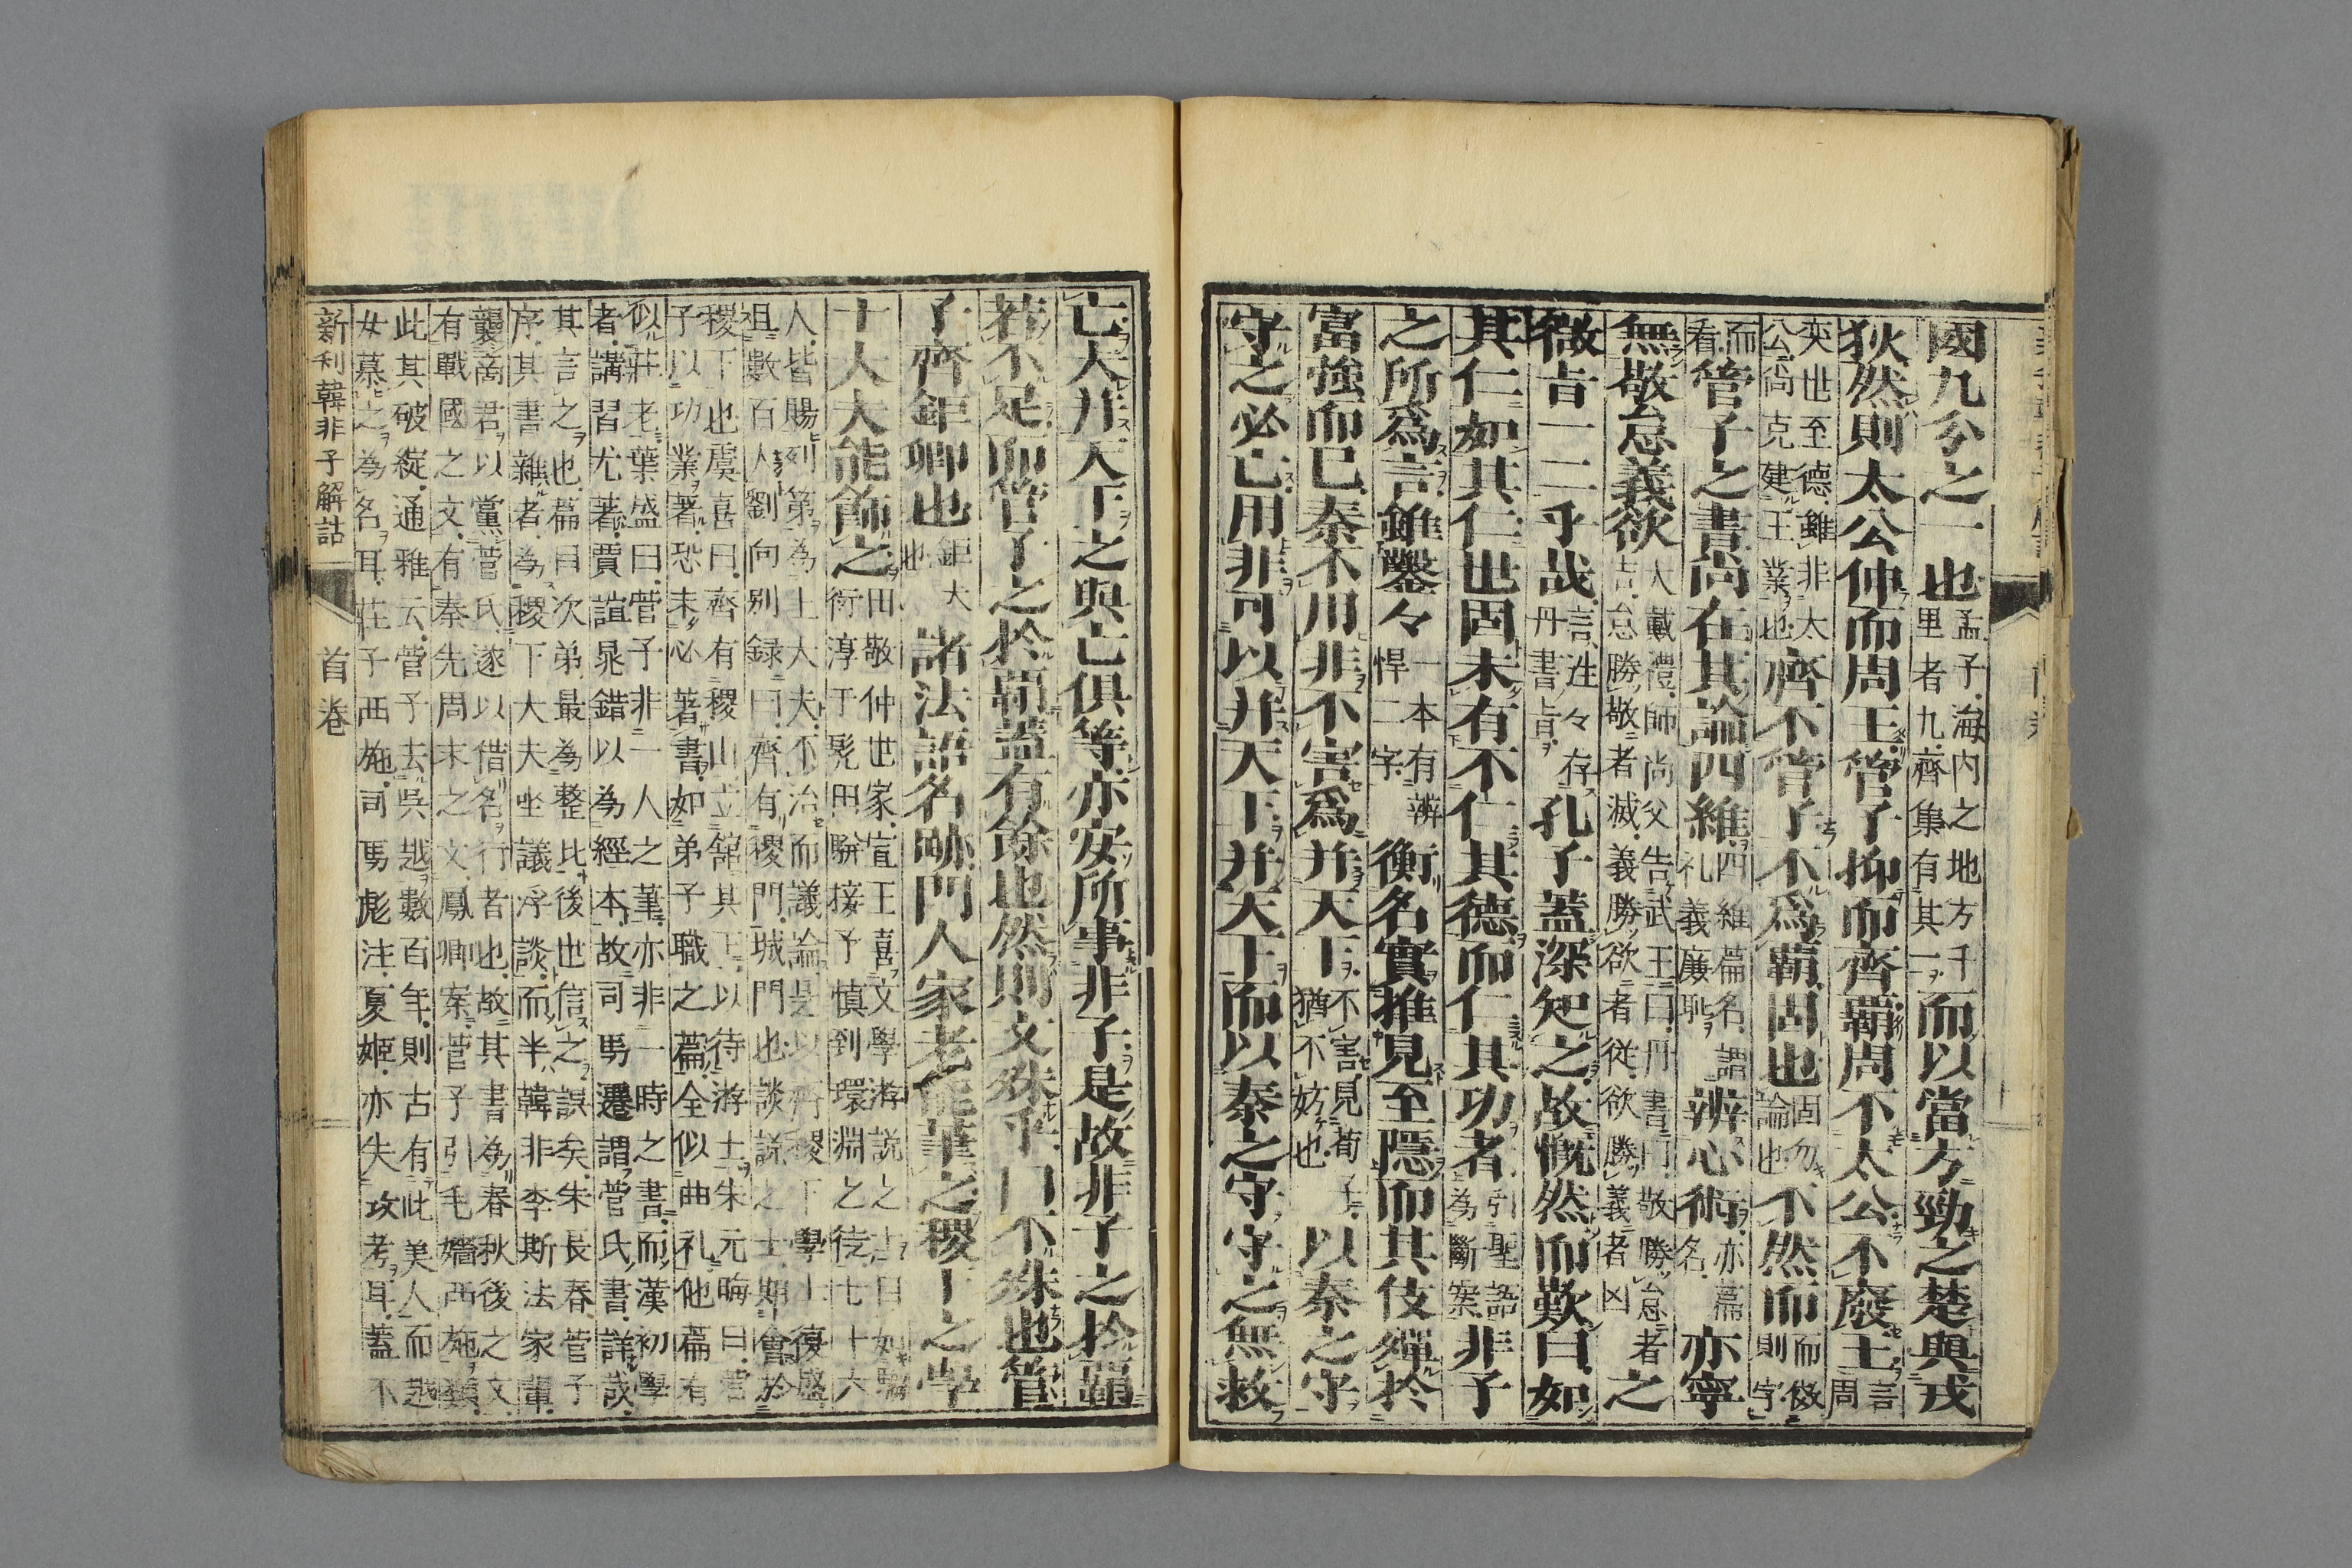 國九分之一也孟子海内之地方千里者九齊集有其一而以當方勁之楚與戎
狄然則太公仲而周王管子抑而齊霸周不太公不廢王言周
公尚克建王業也奕世至德雖非太齊不管子不爲霸固也固勿論也不然而而致則字
看而管子之書尚在其論四維四維篇名謂礼義廉耻辨心術亦篇名亦寧
無敬怠義欲大戴禮師尚父告武王曰丹書曰敬勝怠者吉怠勝敬者滅義勝欲者從欲勝義者凶之
徵旨一二乎哉言注々存丹書旨孔子蓋深知之故慨然而歎曰如
其仁如其仁世固未有不仁其德而仁其功者引聖語為斷案非子
之所爲言雖鑿々一本有辨悍二字衡名實推見至隱而其伎殫於
富強而已秦不用非不害爲并天下不害見荀子猶不妨也以秦之守
守之必亡用非可以并天下并天下而以秦之守守之無救
亡夫并天下之與亡俱等亦安所事非子是故非子之於霸
若不足而管子之於霸蓋有餘也然則文殊乎曰不殊也管
子齊鉅卿也鉅大也諸法語名跡門人家老能筆之稷下之學
士大夫能飾之田敬仲世家宣王喜文學游説之士自如騶衍淳于髡田駢接予慎到環淵之徒七十六
人皆賜列第為上大夫不治而議論是以齊稷下學士復盛且數百人劉向別録曰齊有稷門城門也談説之士期會於
稷下也虞喜曰齊有稷山立舘其下以待游士朱元晦曰管子以功業著恐未必著書如弟子職之篇全似曲礼他篇有
似莊老葉盛曰管子非一人之筆亦非一時之書而漢初學者講習尤著賈誼晁錯以為經本故司馬遷謂管氏書詳哉
其言之也篇目次弟最為整比後世信之誤矣朱長春管子序其書雜者為稷下大夫坐議浮談而半韓非李斯法家輩
襲商君以黨管氏遂以借名行者也故其書為春秋後之文有戰國之文有秦先周末之文鳳卿案管子引毛嬙西施類
此其破綻通雅云管子去呉越數百年則古有此美人而越女慕之為名耳荘子西施司馬彪注夏姬亦失攻考耳蓋不
新刋韓非子解詁　首卷